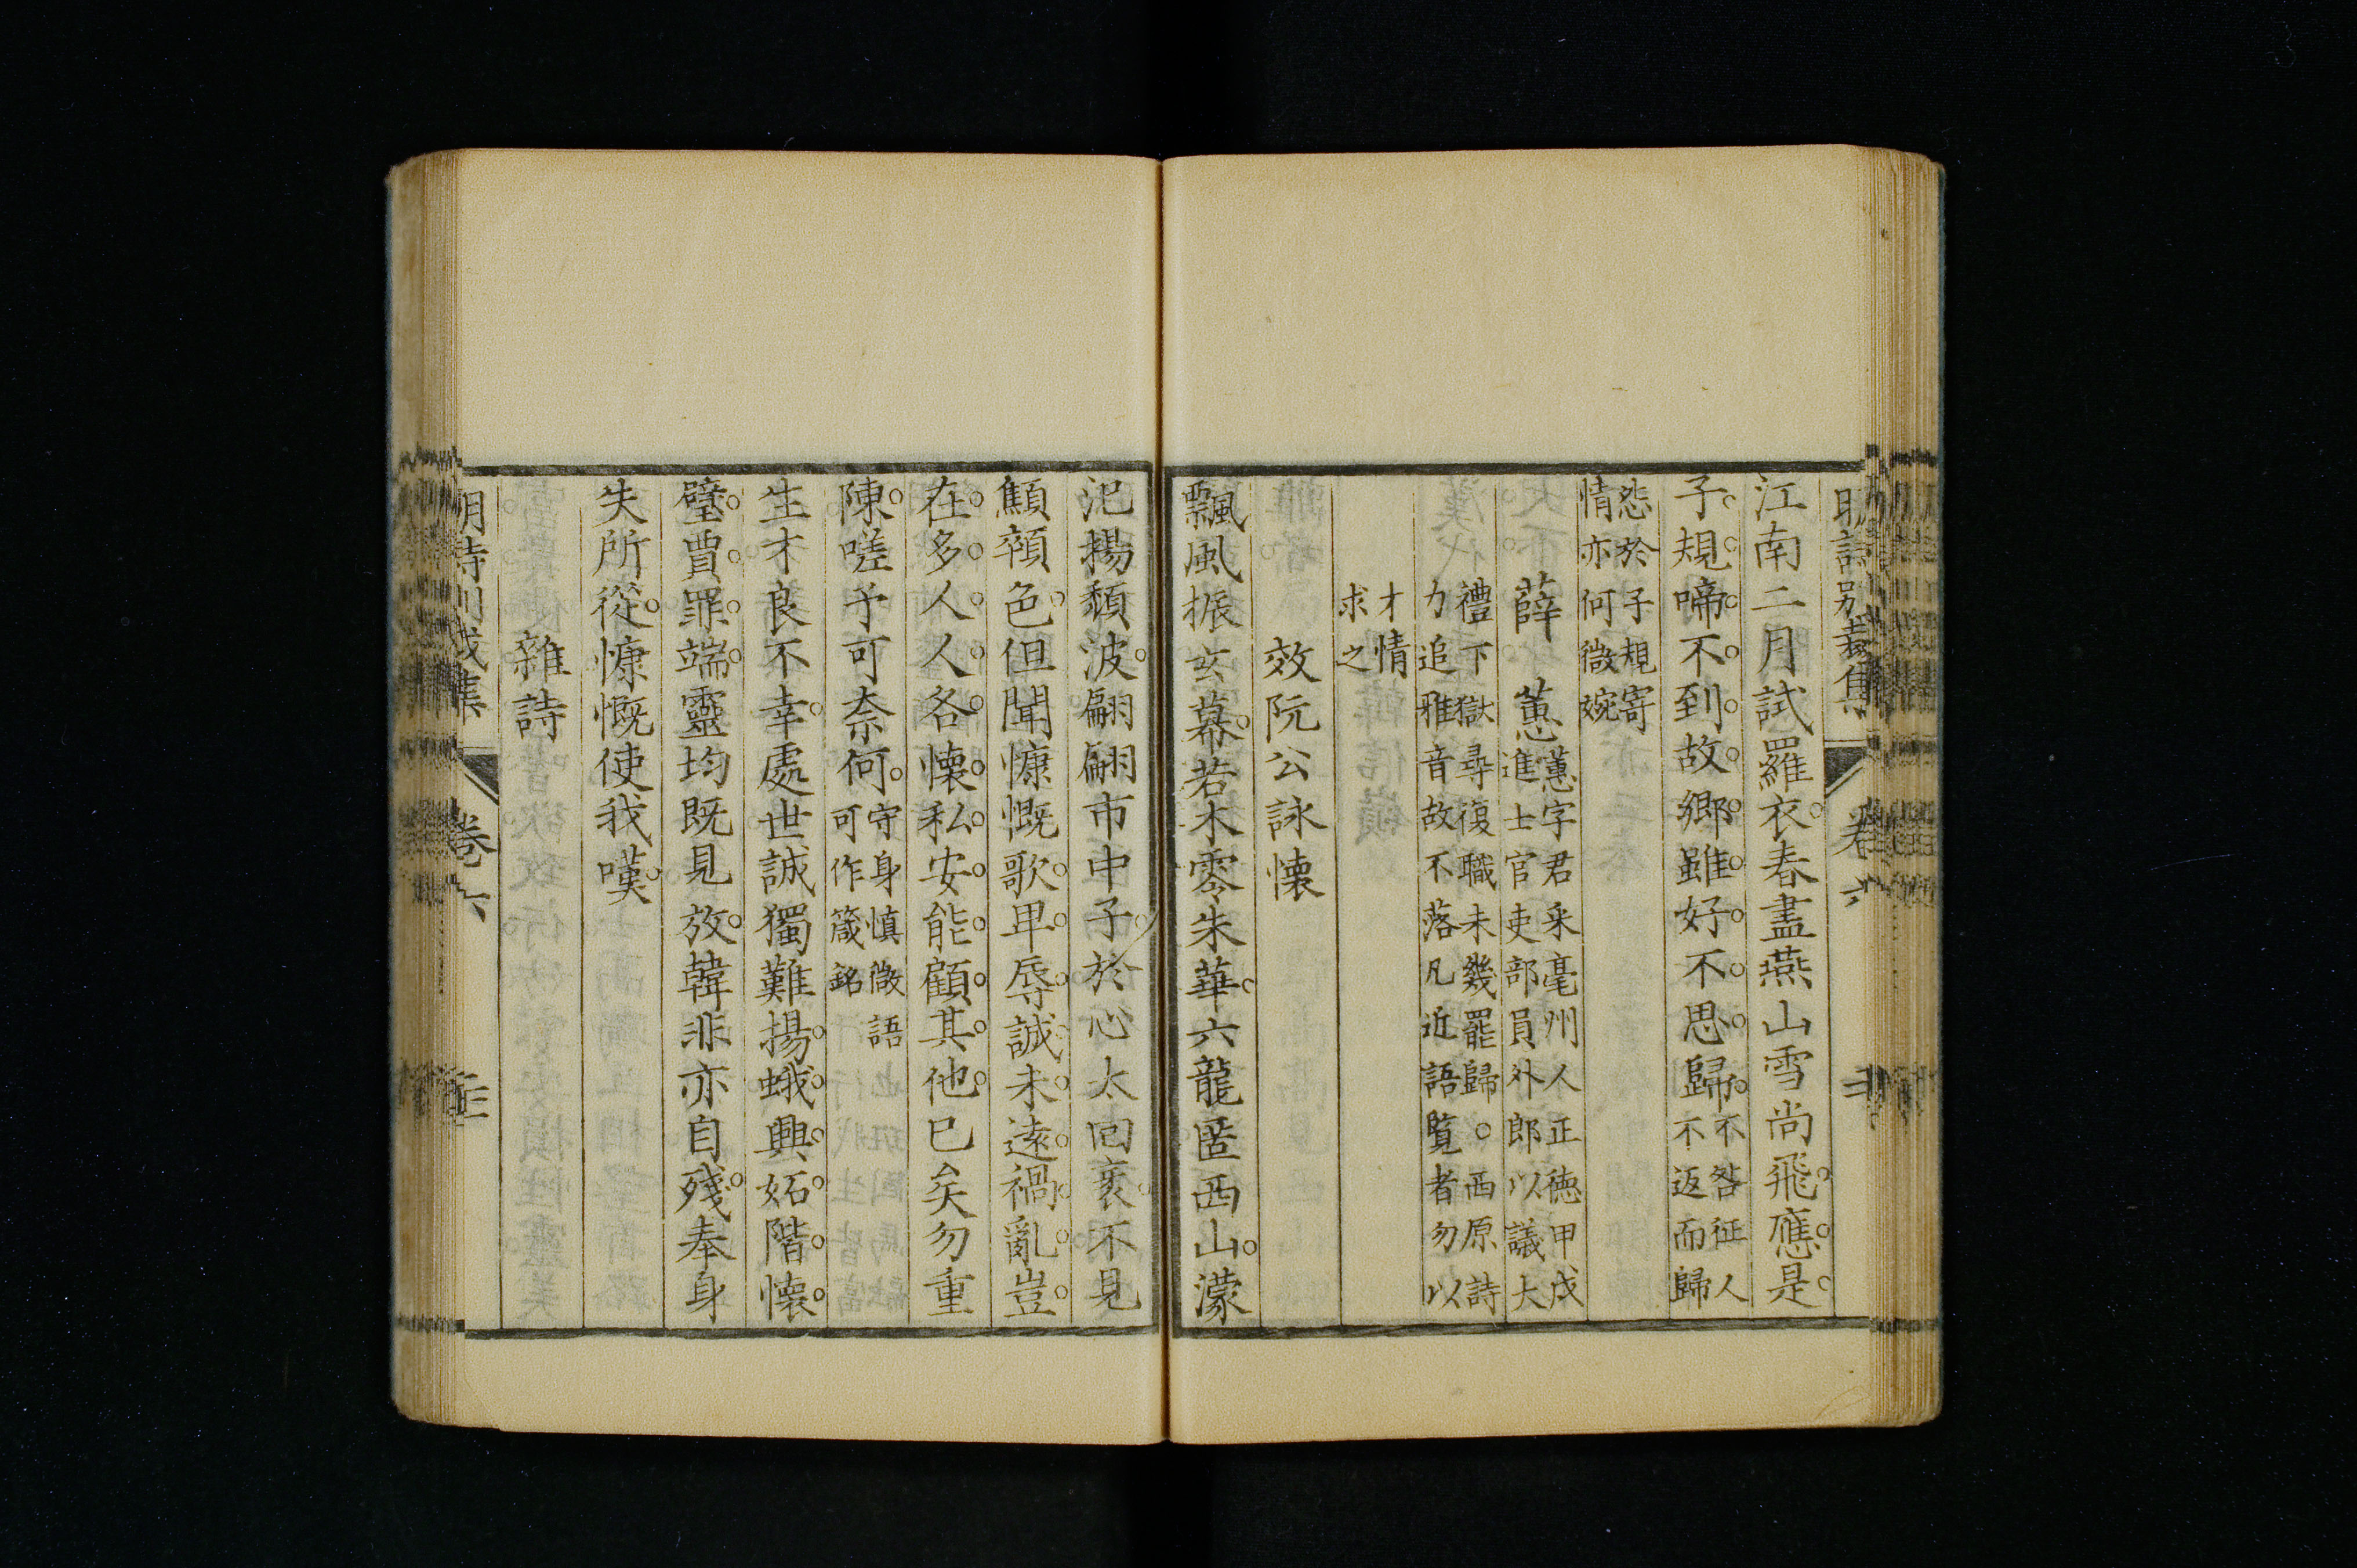 明詩別裁集 卷六
江南二月試羅衣春盡燕山雪尚飛應是
子規啼不到故鄉雖好不思歸不咎征人不返而歸
怨於子規寄情亦何微婉
薛蕙 蕙字君采亳州人正德甲戌進士官吏部員外郎以議大
禮下獄尋復職未幾罷歸○西原詩力追雅音故不落凡近語覽者勿以
才情求之
效阮公詠懷
飄風振玄幕若木零朱華六龍匿西山濛
汜揚頹波翩翩市中子於心太回衺不見
顦顇色但聞慷慨歌卑辱誠未遠禍亂豈
在多人人各懷私安能顧其他已矣勿重
陳嗟予可奈何守身慎微語可作箴銘
生才良不幸處世誠獨難揚蛾興妬階懷
璧賈罪端靈均既見放韓非亦自殘奉身
失所從慷慨使我嘆
雜詩
明詩別裁集 卷六